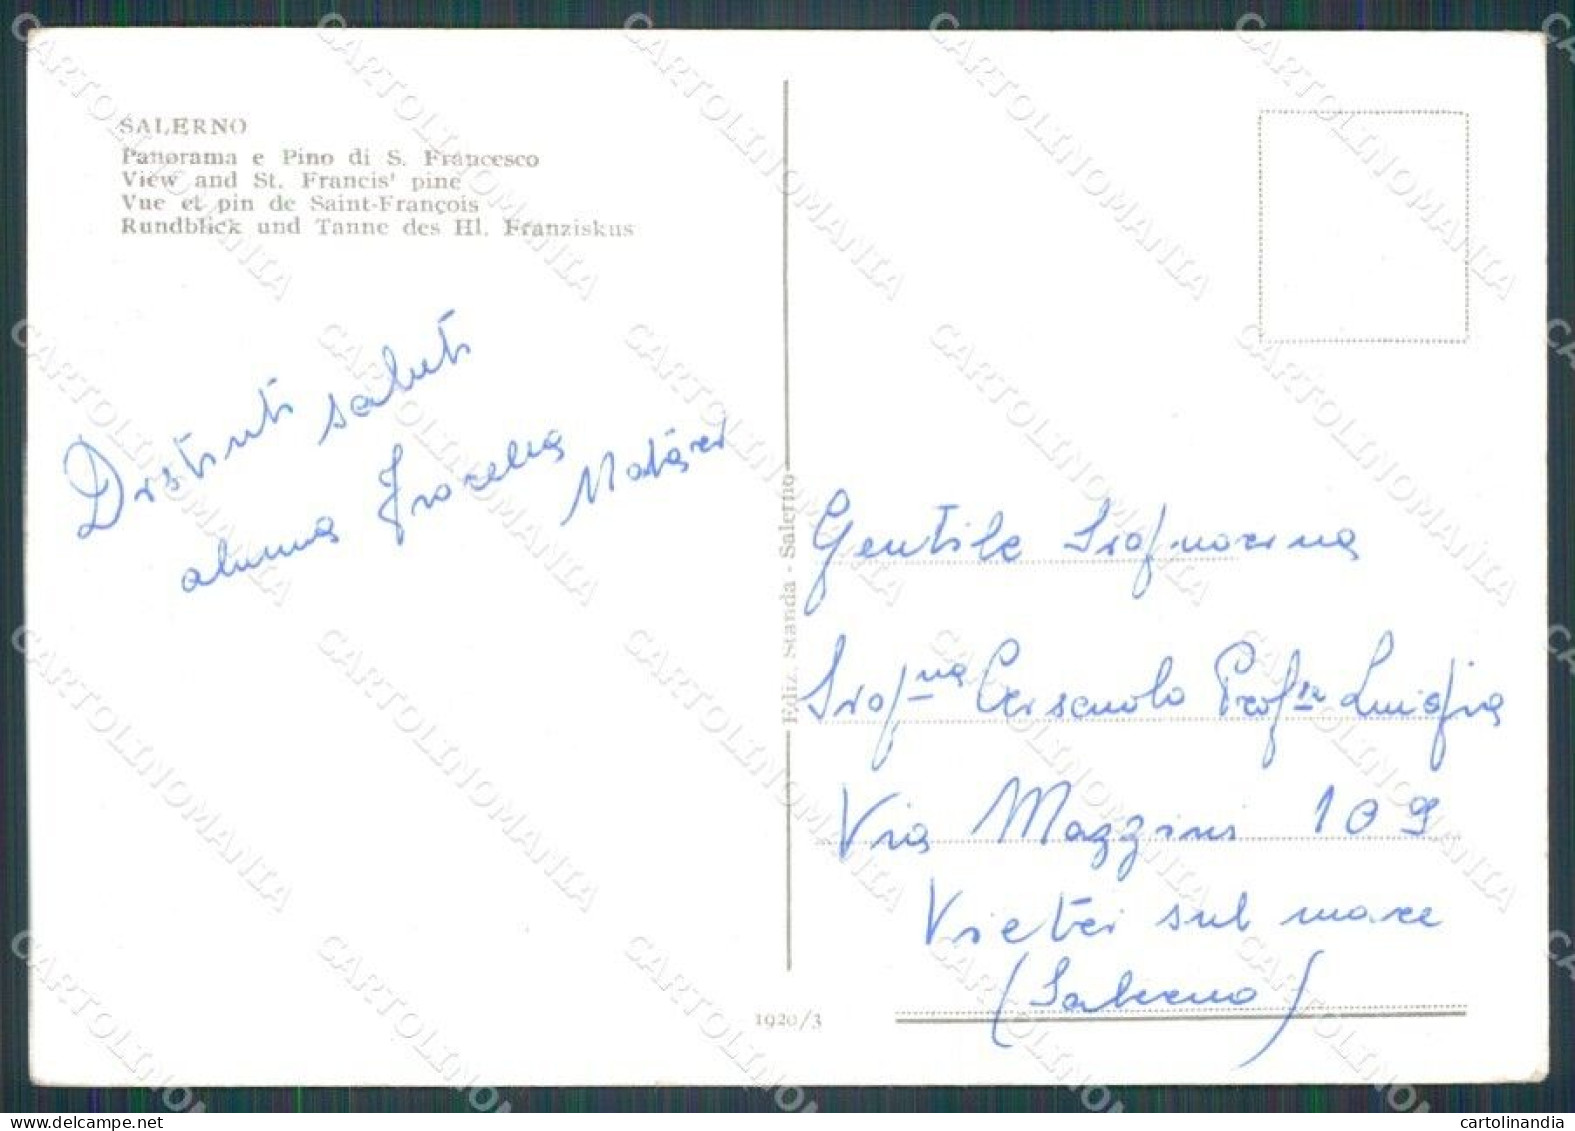 SALERNO
Panorama e Pino di S. Francesco
View and St. Francis' pine
Vue et pin de Saint-François
Rundblick und Tanne des Hl. Franziskus
Distinti saluti
alunna
Ediz. Standa - Salerno
Gentile Signorina
Sig.na Prof.ssa
Via Mazzini 109
Vietri sul mare
(Salerno)
1920/3
CARTOLINOMANIA
cartolinandia